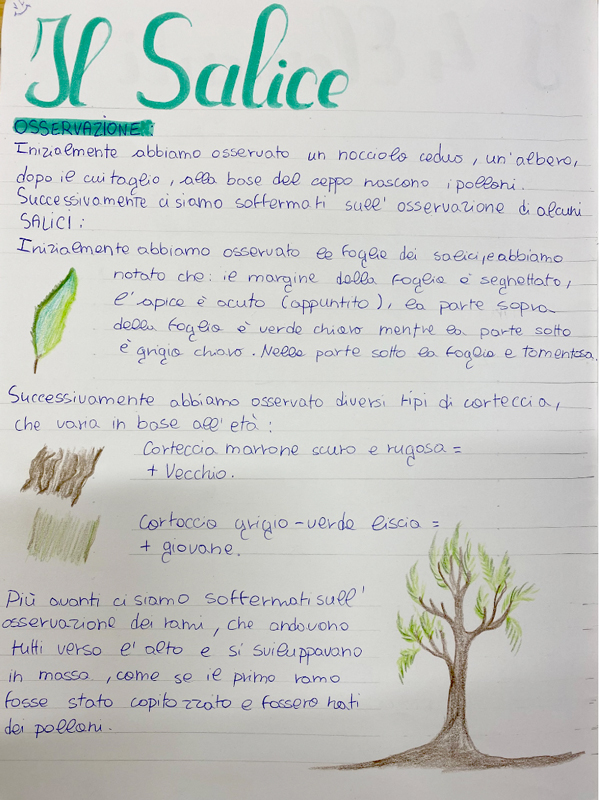 Il Salice
OSSERVAZIONE:
Inizialmente abbiamo osservato un nocciolo ceduo, un'albero,
dopo il cui taglio, alla base del ceppo nascono i polloni.
Successivamente ci siamo soffermati sull'osservazione di alcuni
SALICI:
Inizialmente abbiamo osservato le foglie dei salici, e abbiamo
notato che: il margine della foglia è seghettato,
l'apice è acuto (appuntito), la parte sopra
della foglia è verde chiaro mentre la parte sotto
è grigio chiaro. Nella parte sotto la foglia e tomentosa.
Successivamente abbiamo osservato diversi tipi di corteccia,
che varia in base all'età:
Corteccia marrone scuro e rugosa =
+ Vecchio.
Corteccia grigio-verde liscia =
+ giovane.
Più avanti ci siamo soffermati sull'
osservazione dei rami, che andavano
tutti verso l'alto e si sviluppavano
in massa, come se il primo ramo
fosse stato capitozzato e fossero nati
dei polloni.